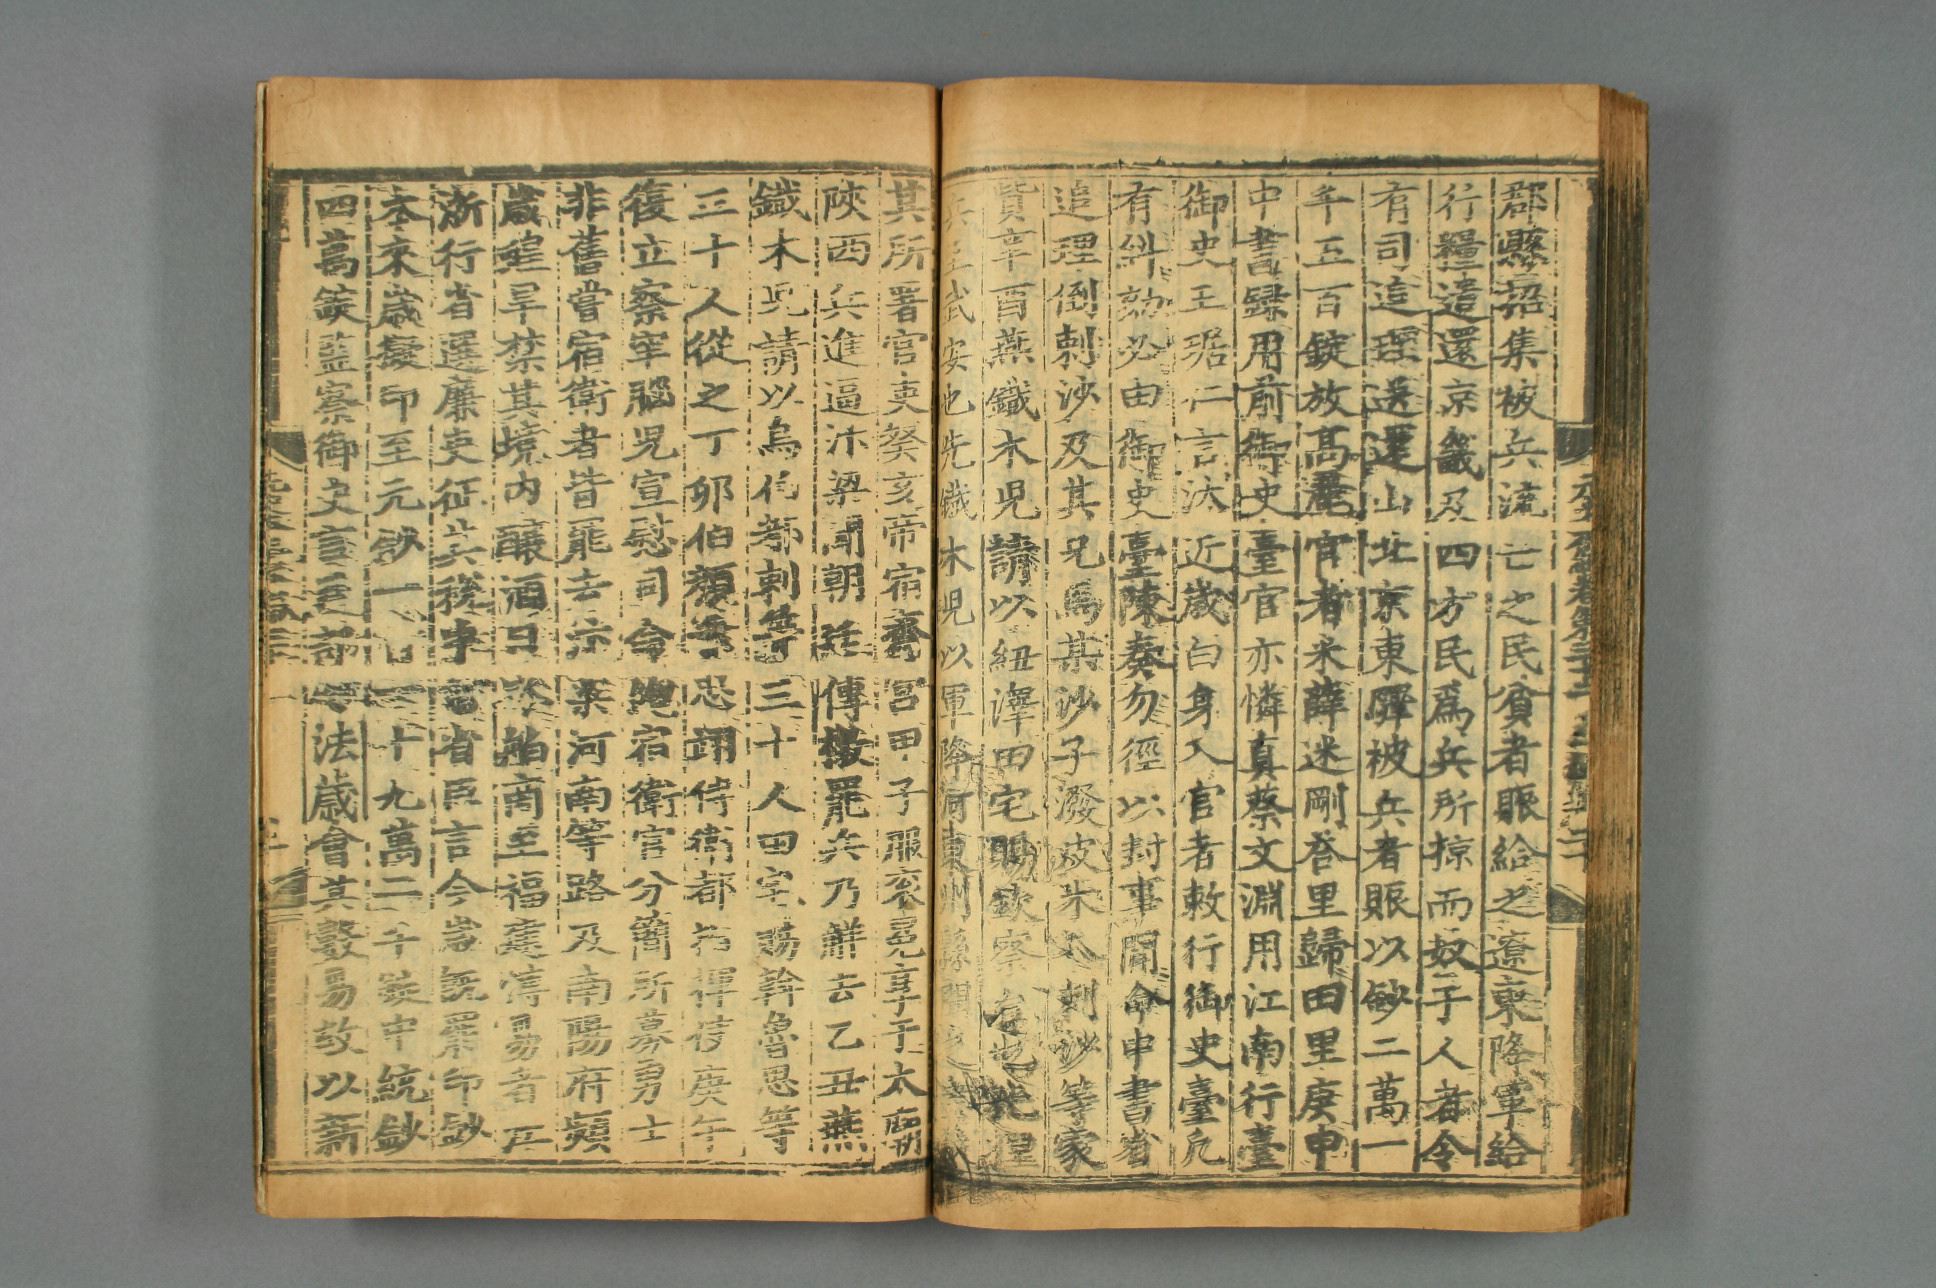 郡縣招集被兵流亡之民貧者賑給之遼東降軍給
行糧遣還京畿及四方民爲兵所掠而奴于人者令
有司追理送還山北京東驛被兵者賑以鈔二萬一
千五百錠放高麗宦者米薛迷剛荅里歸田里庚申
中書録用前御史臺官亦憐真蔡文淵用江南行臺
御史王琚仁言汰近歲白身入官者敕行御史臺凡
有糾劾必由御史臺陳奏勿徑以封事聞命中書省
追理倒剌沙及其兄馬某沙子潑皮木八剌沙等家
貲辛酉燕鐵木兒請以紐澤田宅賜欽察台也先捏
兵至武安也先鐵木兒以軍降河東州縣聞之
其所署官吏癸亥帝宿齋宮甲子服衮冕享于太廟
陝西兵進逼汴梁聞朝廷傳檄罷兵乃解去乙丑燕
鐵木兒請以烏伯都剌等三十人田宅賜斡魯思等
三十人從之丁卯伯顏兼忠翊侍衛都指揮使庚午
復立察罕腦兒宣慰司命宿衛官分簡所募勇士
非舊嘗宿衛者皆罷去汴梁河南等路及南陽府頻
歲蝗旱禁其境内釀酒日本舶商至福建博易者江
浙行省選廉吏征其稅中書省臣言今歲旣罷印鈔
本來歲擬印至元鈔一百一十九萬二千錠中統鈔
四萬錠監察御史言戶部鈔法歲會其數易故以新